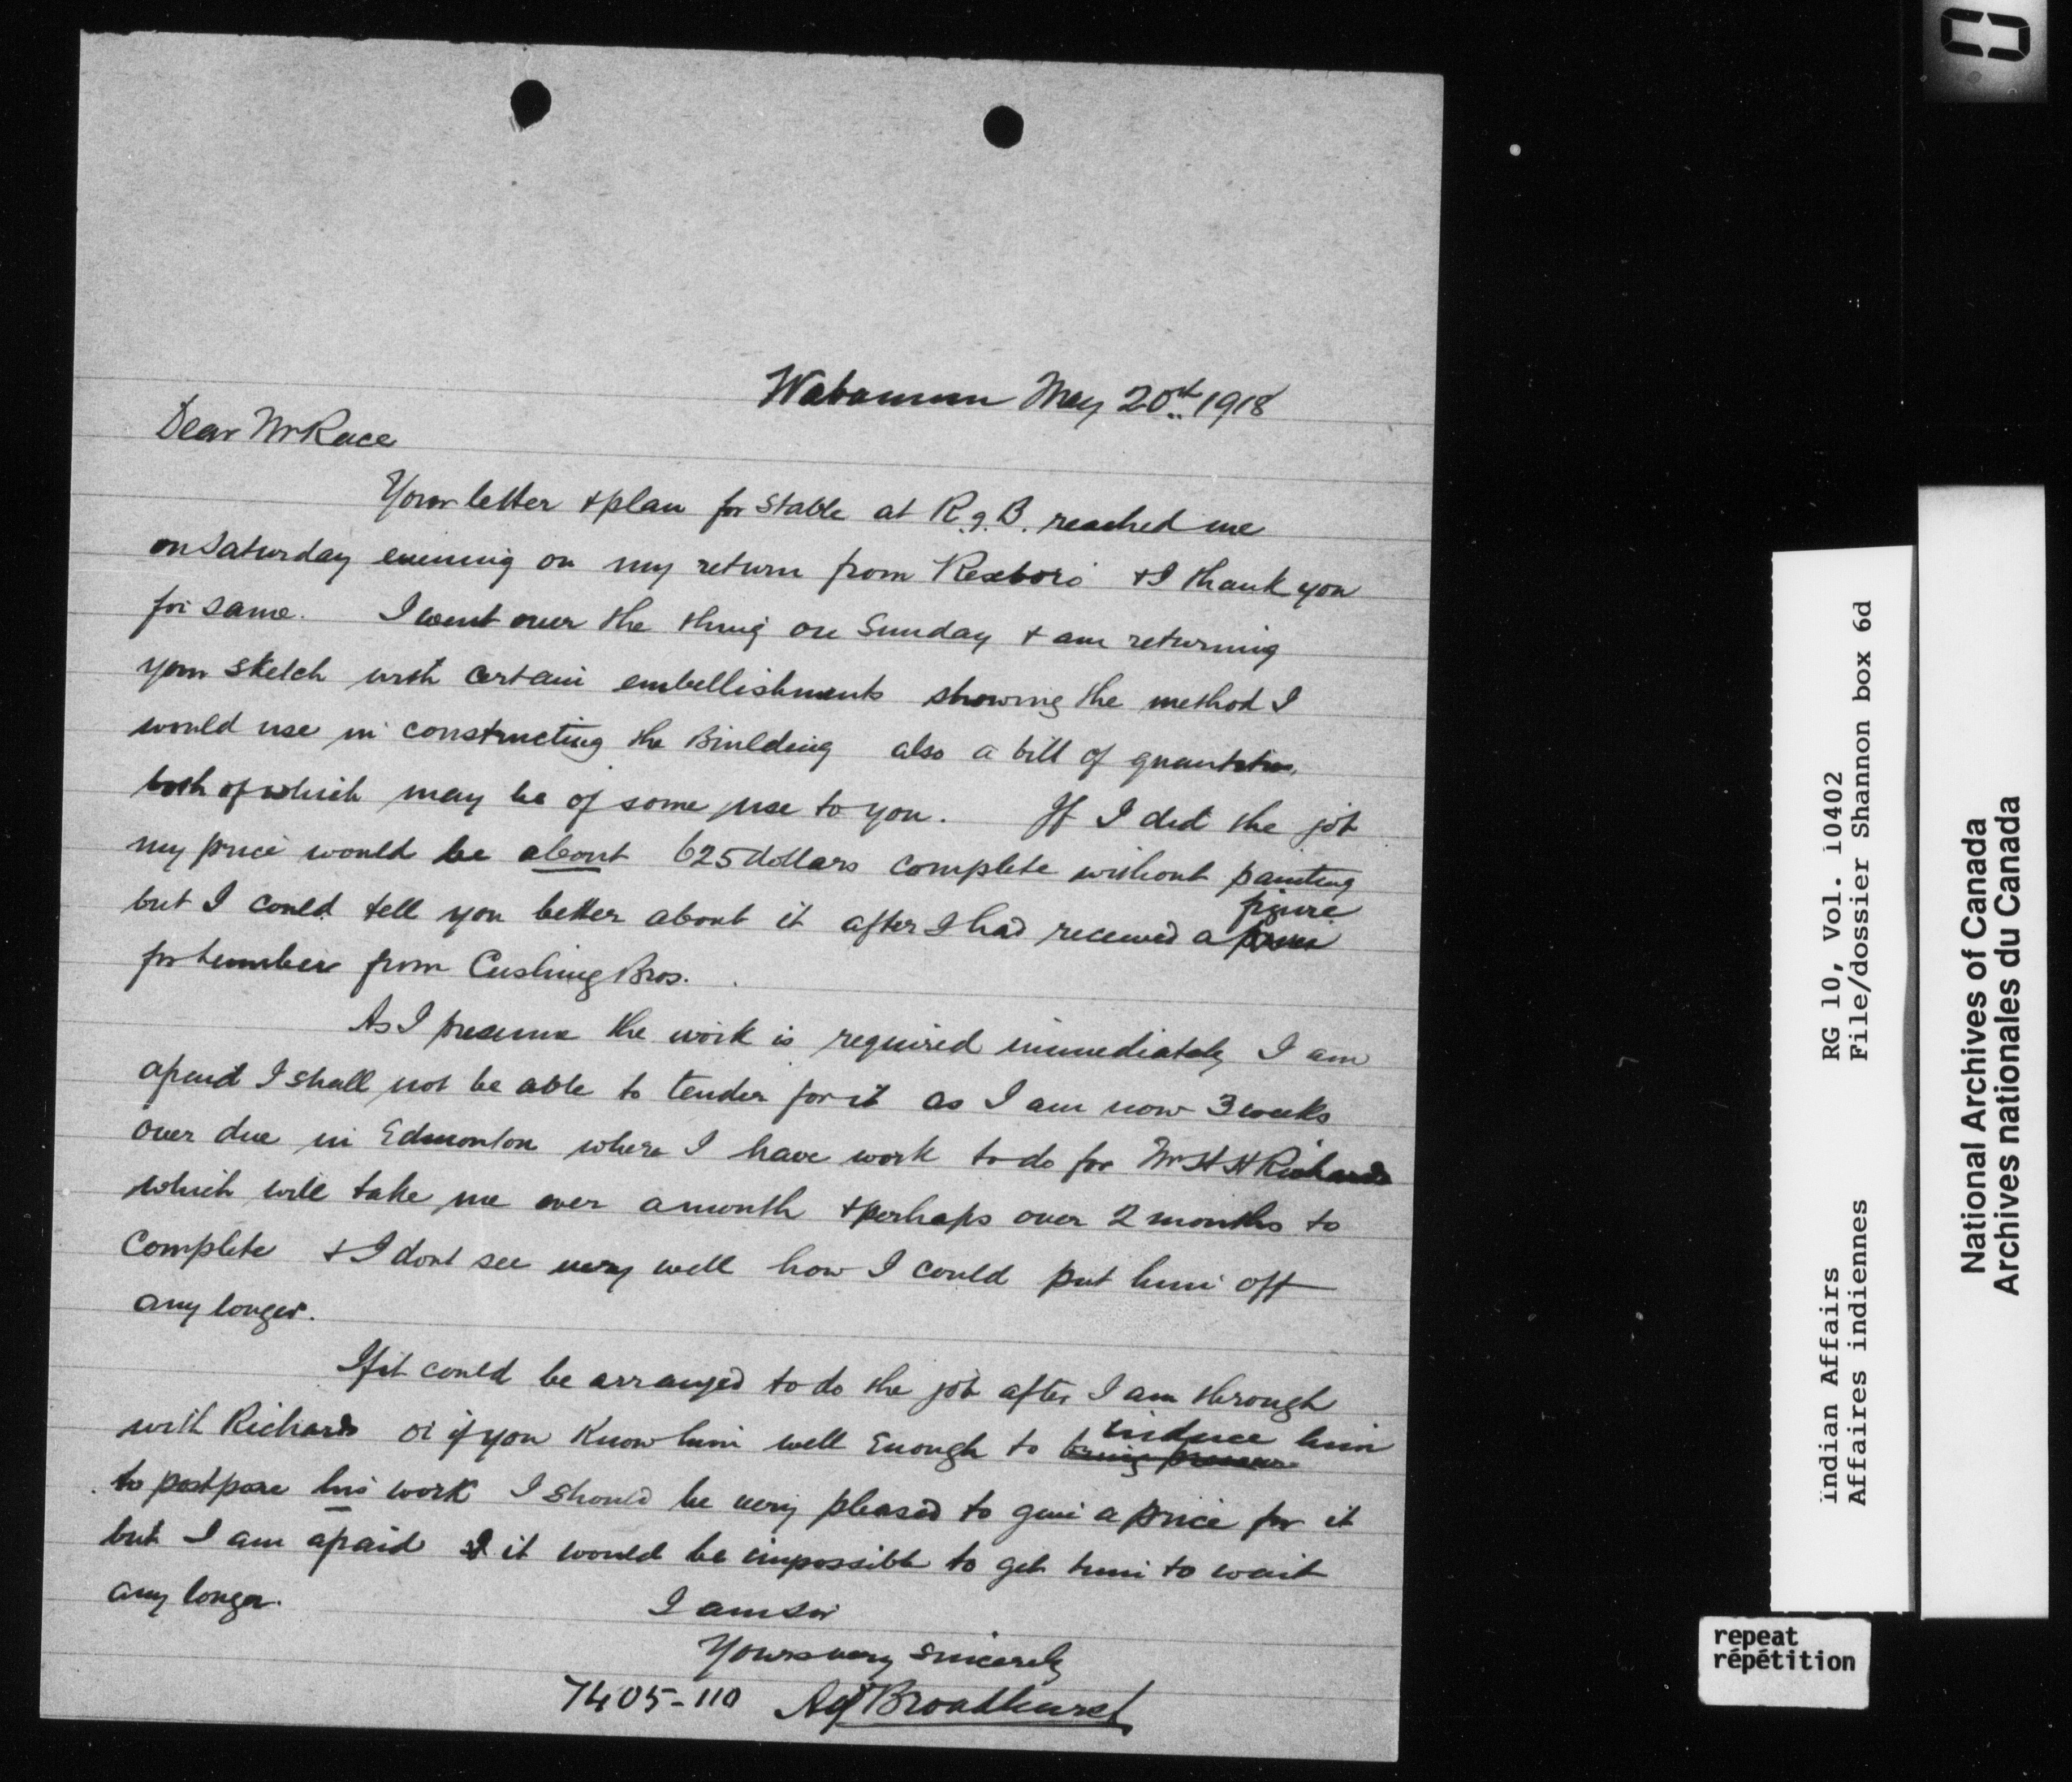 Wabamun May 20th 1918
Dear Mr Race
Your letter + plan for Stable at R.g.B. reached me
on Saturday evening on my return from Rexboro + I thank you
for same. I went over the thing on Sunday + am returning
your sketch with certain embellishments showing the method I
would use in constructing the Building also a bill of quantities,
both of which may be of some use to you. If I did the job
my price would be about 625 dollars complete without painting
but I could tell you better about it after I had received a figure
for Lumber from Cushing Bros.
As I presume the work is required immediately I am
afraid I shall not be able to tender for it as I am now 3 weeks
over due in Edmonton where I have work to do for Mr H H Richards
which will take me over a month + perhaps over 2 months to
complete + I dont see very well how I could put him off
any longer.
If it could be arranged to do the job after I am through
with Richards or if you know him well enough to induce him
to postpone his work I should be very pleased to give a price for it
but I am afraid it would be impossible to get him to wait
any longer.
I am Sir
Yours very sincerely
7405-110 Broadhurst
Indian Affairs RG 10, Vol. 10402
Affaires indiennes File/dossier Shannon box 6d
National Archives of Canada
Archives nationales du Canada
repeat
répétition